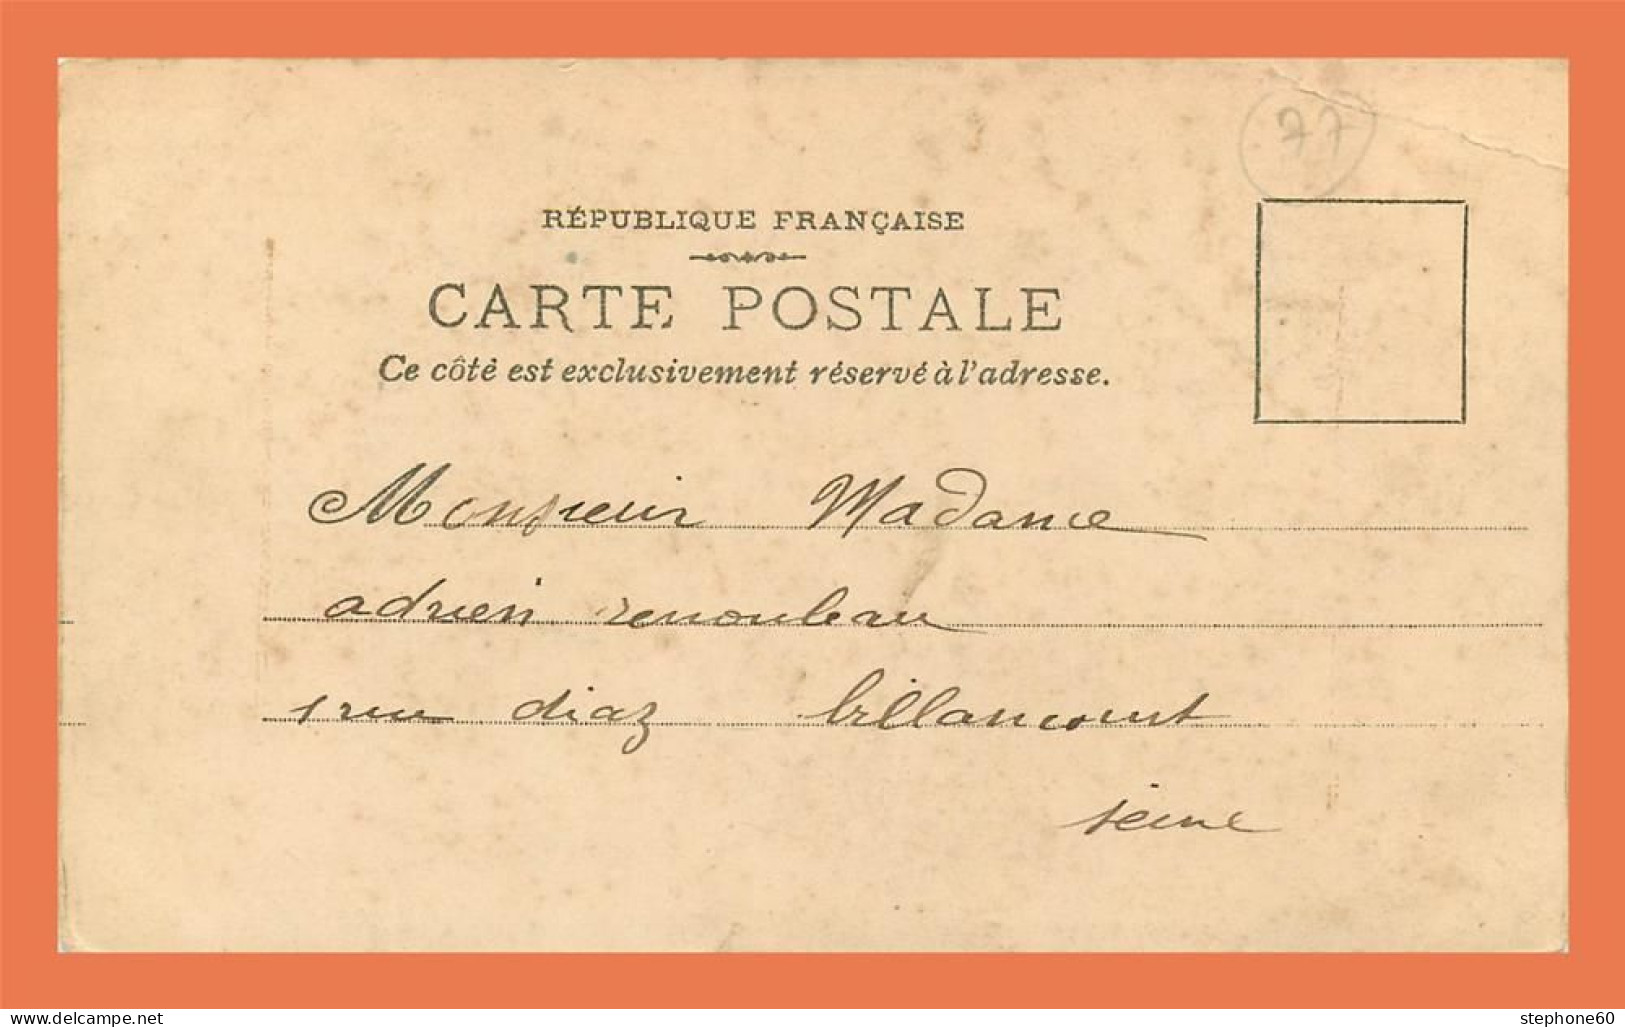 77
RÉPUBLIQUE FRANÇAISE
CARTE POSTALE
Ce côté est exclusivement réservé à l'adresse.
Monsieur Madame
adrien renouleau
1 rue diaz billancourt
seine
www.delcampe.net
stephone60